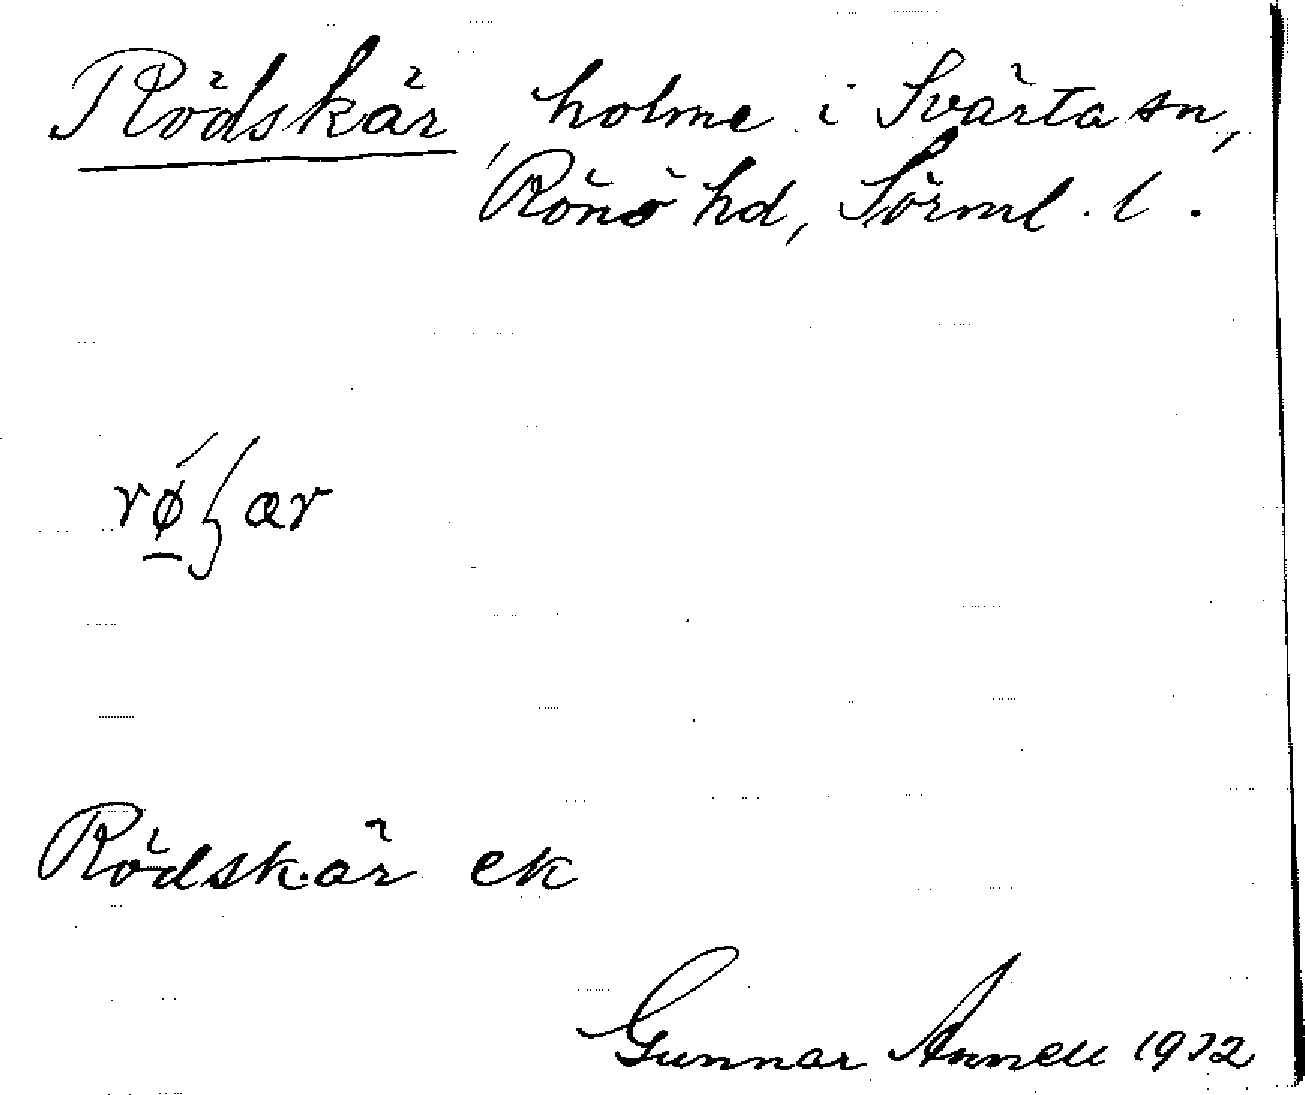 Rödskär, holme i Svärta sn,
Rönö hd, Sörml. l.
Rödskär ek
Gunnar Annell 1932